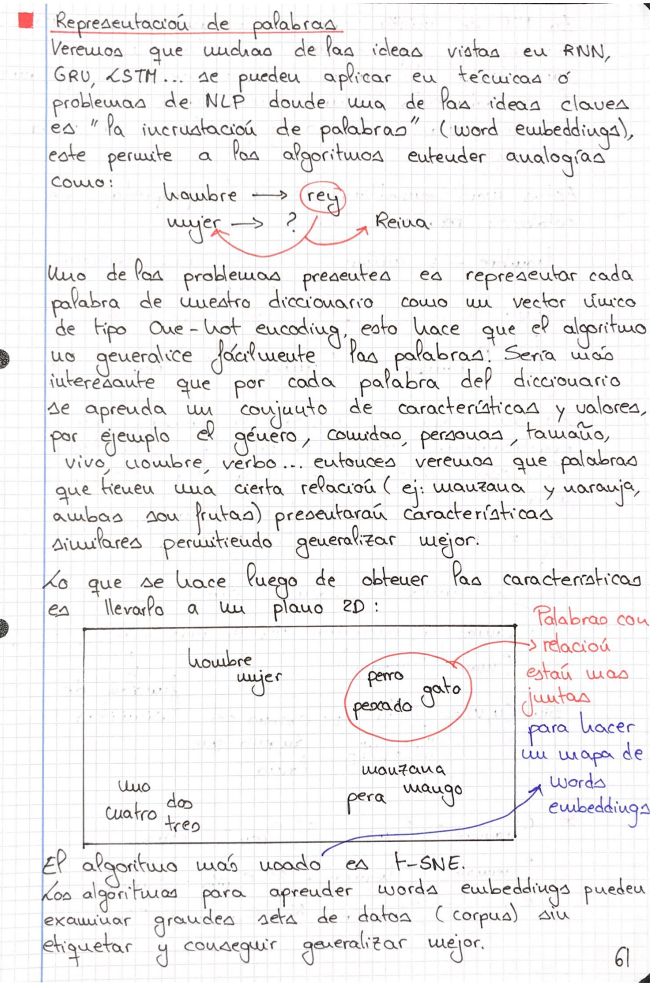 Representación de palabras
Veremos que muchas de las ideas vistas en RNN,
GRU, LSTM... se pueden aplicar en técnicas o
problemas de NLP donde una de las ideas claves
es "la incrustación de palabras" (word embeddings),
este permite a los algoritmos entender analogías
como:
hombre → rey
mujer → ? Reina
Uno de los problemas presentes es representar cada
palabra de nuestro diccionario como un vector único
de tipo One-hot encoding, esto hace que el algoritmo
no generalice fácilmente las palabras. Sería más
interesante que por cada palabra del diccionario
se aprenda un conjunto de características y valores,
por ejemplo el género, comidas, personas, tamaño,
vivo, nombre, verbo... entonces veremos que palabras
que tienen una cierta relación (ej: manzana y naranja,
ambas son frutas) presentarán características
similares permitiendo generalizar mejor.
Lo que se hace luego de obtener las características
es llevarlo a un plano 2D:
hombre
mujer
perro
gato
pescado
manzana
pera mango
uno
dos
cuatro
tres
Palabras con
relación
están mas
juntas
para hacer
un mapa de
words
embeddings
El algoritmo más usado es t-SNE.
Los algoritmos para aprender words embeddings pueden
examinar grandes sets de datos (corpus) sin
etiquetar y conseguir generalizar mejor.
61